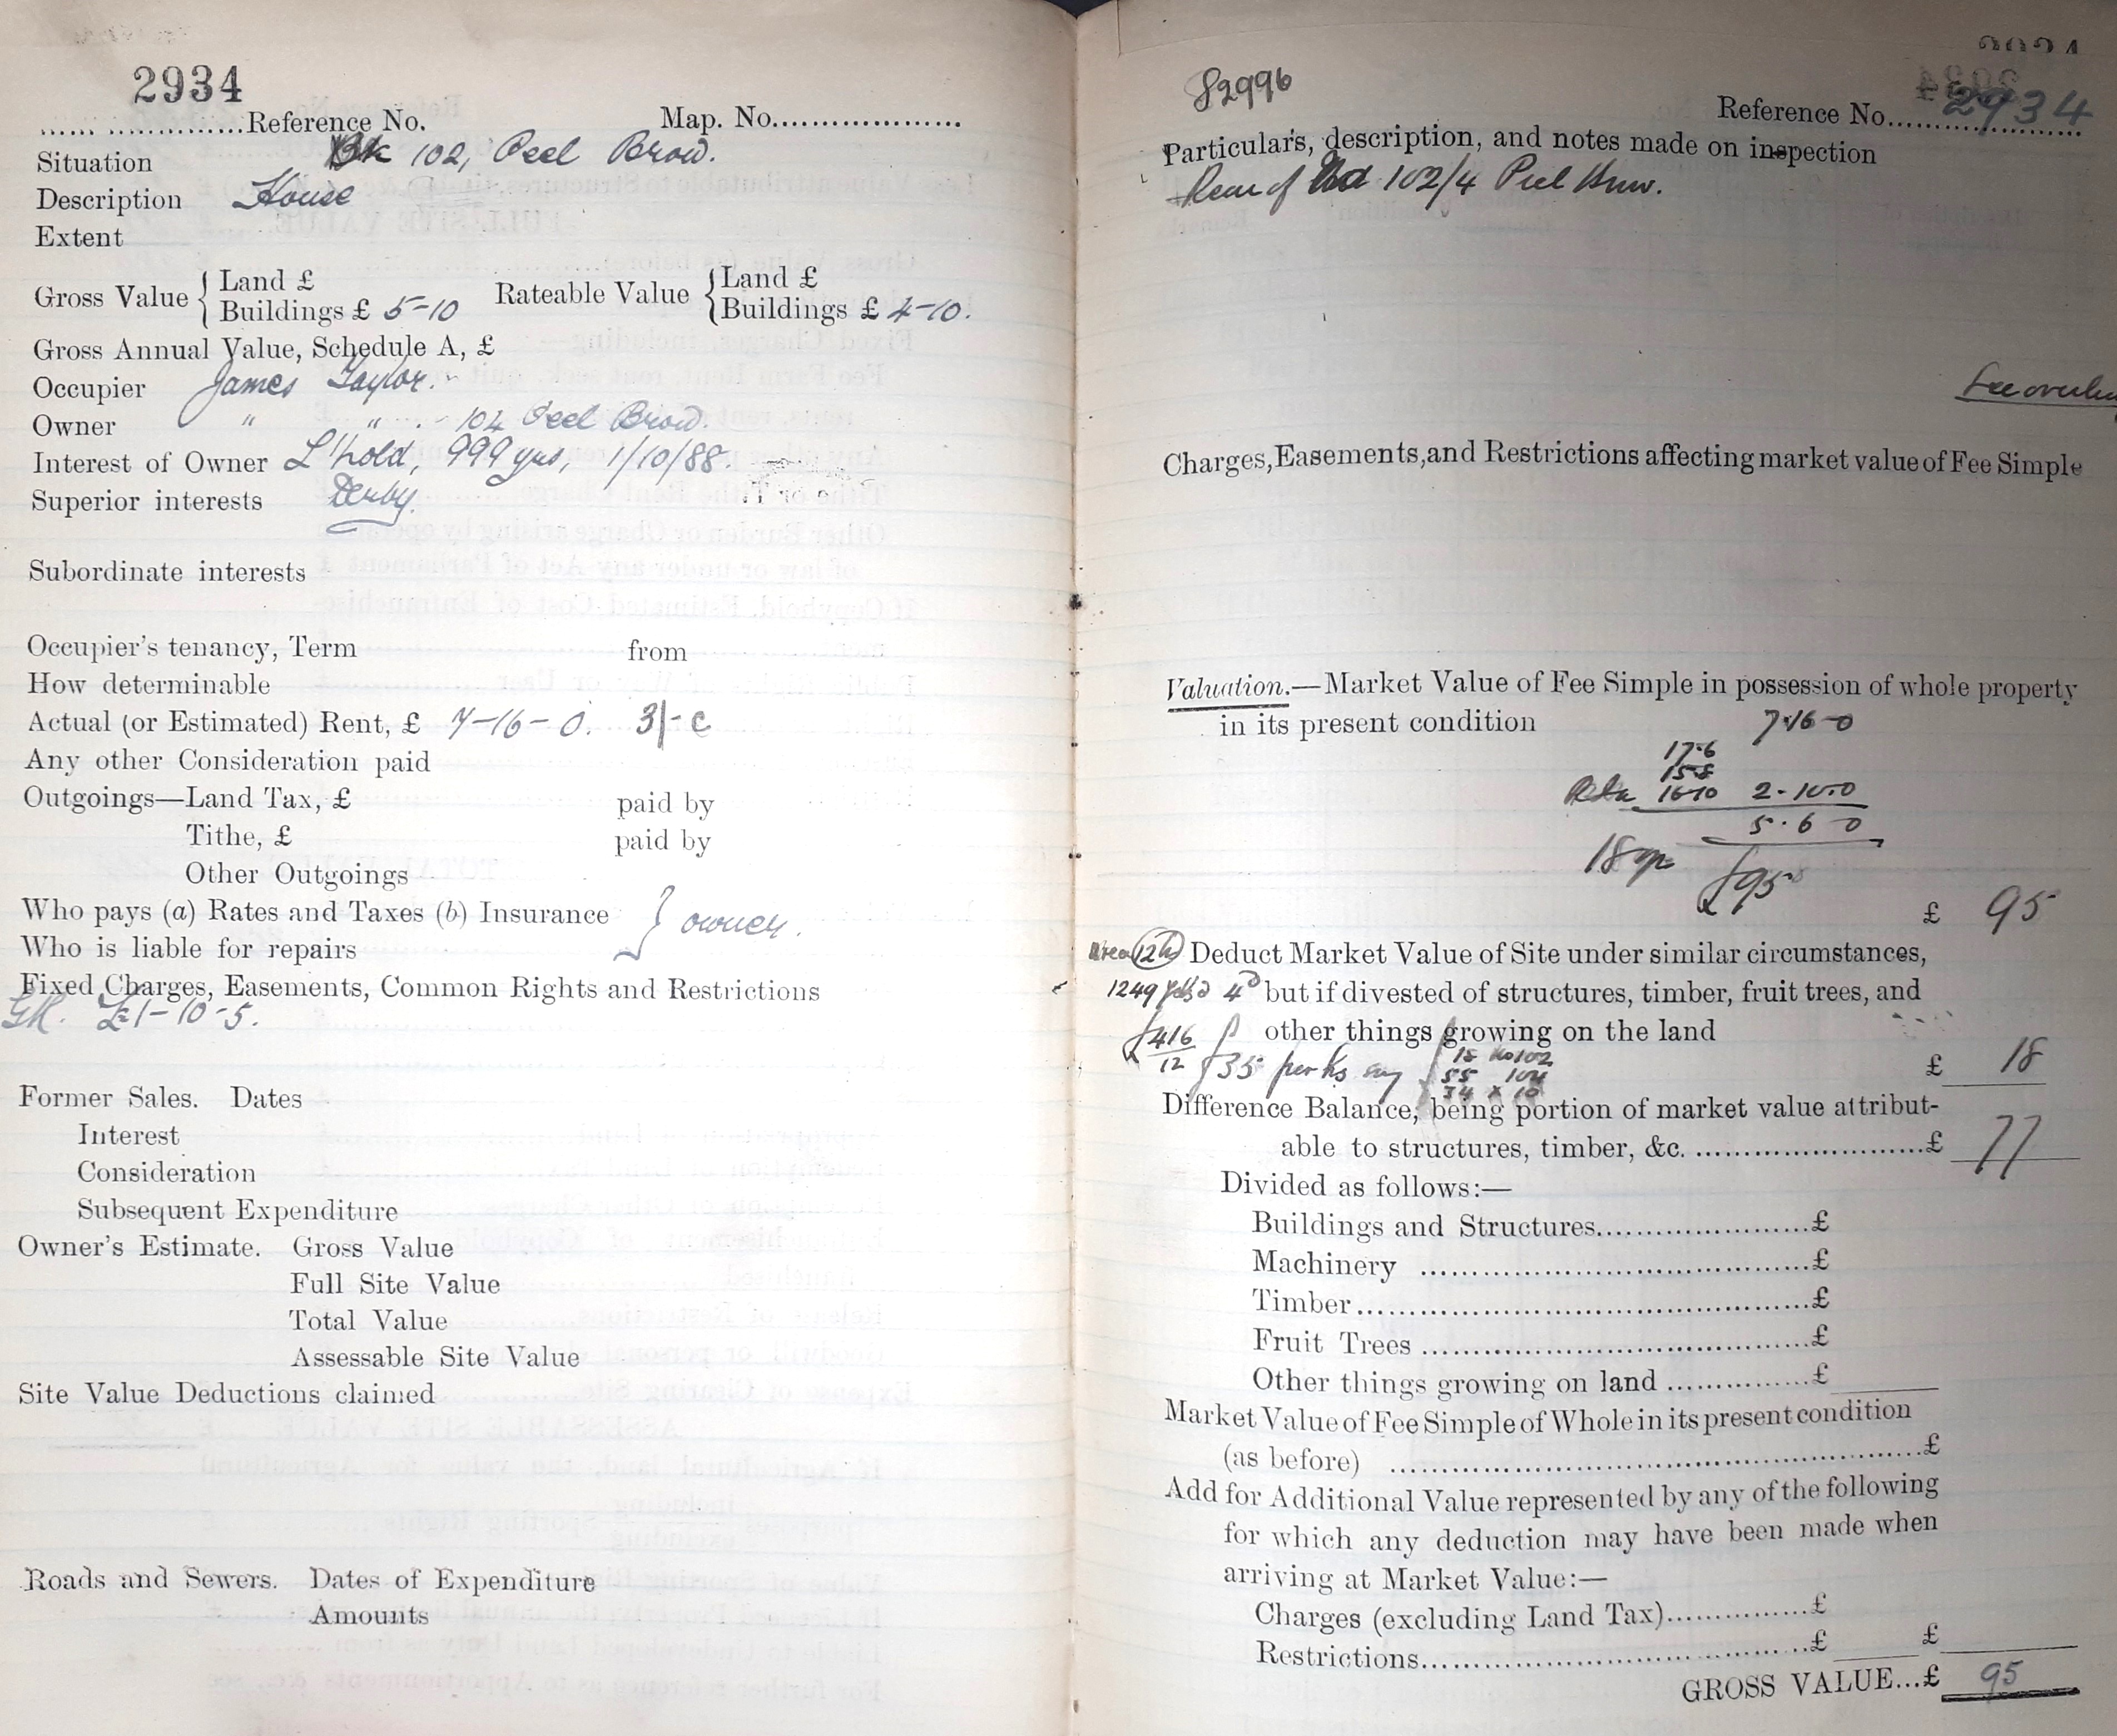 2934
...... ..............Reference No. Map. No...................
Situation Bk 102, Peel Brow.
Description House
Extent
Gross Value { Land £ Rateable Value { Land £
Buildings £ 5-10 Buildings £ 4-10.
Gross Annual Value, Schedule A, £
Occupier James Taylor.
Owner " " 104 Peel Brow.
Interest of Owner L'hold, 999 yrs, 1/10/88.
Superior interests Derby.
Subordinate interests
Occupier's tenancy, Term from
How determinable
Actual (or Estimated) Rent, £ 7-16-0. 3/- c
Any other Consideration paid
Outgoings—Land Tax, £ paid by
Tithe, £ paid by
Other Outgoings
Who pays (a) Rates and Taxes (b) Insurance } owner.
Who is liable for repairs
Fixed Charges, Easements, Common Rights and Restrictions
GR. £1-10-5.
Former Sales. Dates
Interest
Consideration
Subsequent Expenditure
Owner's Estimate. Gross Value
Full Site Value
Total Value
Assessable Site Value
Site Value Deductions claimed
Roads and Sewers. Dates of Expenditure
Amounts
82996
Reference No. 2934
Particulars, description, and notes made on inspection
Rear of 102/4 Peel Brow.
Charges, Easements, and Restrictions affecting market value of Fee Simple
Valuation.—Market Value of Fee Simple in possession of whole property
in its present condition 7.16-0
17.6
15.8
16-10 2-10.0
5.6 0
18 yp £95
£ 95
Area (12h) Deduct Market Value of Site under similar circumstances,
1249 yds @ 4d but if divested of structures, timber, fruit trees, and
£416 other things growing on the land
12 £35 perks say 18 No 102
55 104
£ 18
Difference Balance, being portion of market value attribut-
able to structures, timber, &c. ........................£ 77
Divided as follows:—
Buildings and Structures......................£
Machinery ......................................£
Timber............................................£
Fruit Trees ......................................£
Other things growing on land ...............£
Market Value of Fee Simple of Whole in its present condition
(as before) .....................................................£
Add for Additional Value represented by any of the following
for which any deduction may have been made when
arriving at Market Value:—
Charges (excluding Land Tax)...............£
Restrictions.......................................£ £
GROSS VALUE...£ 95